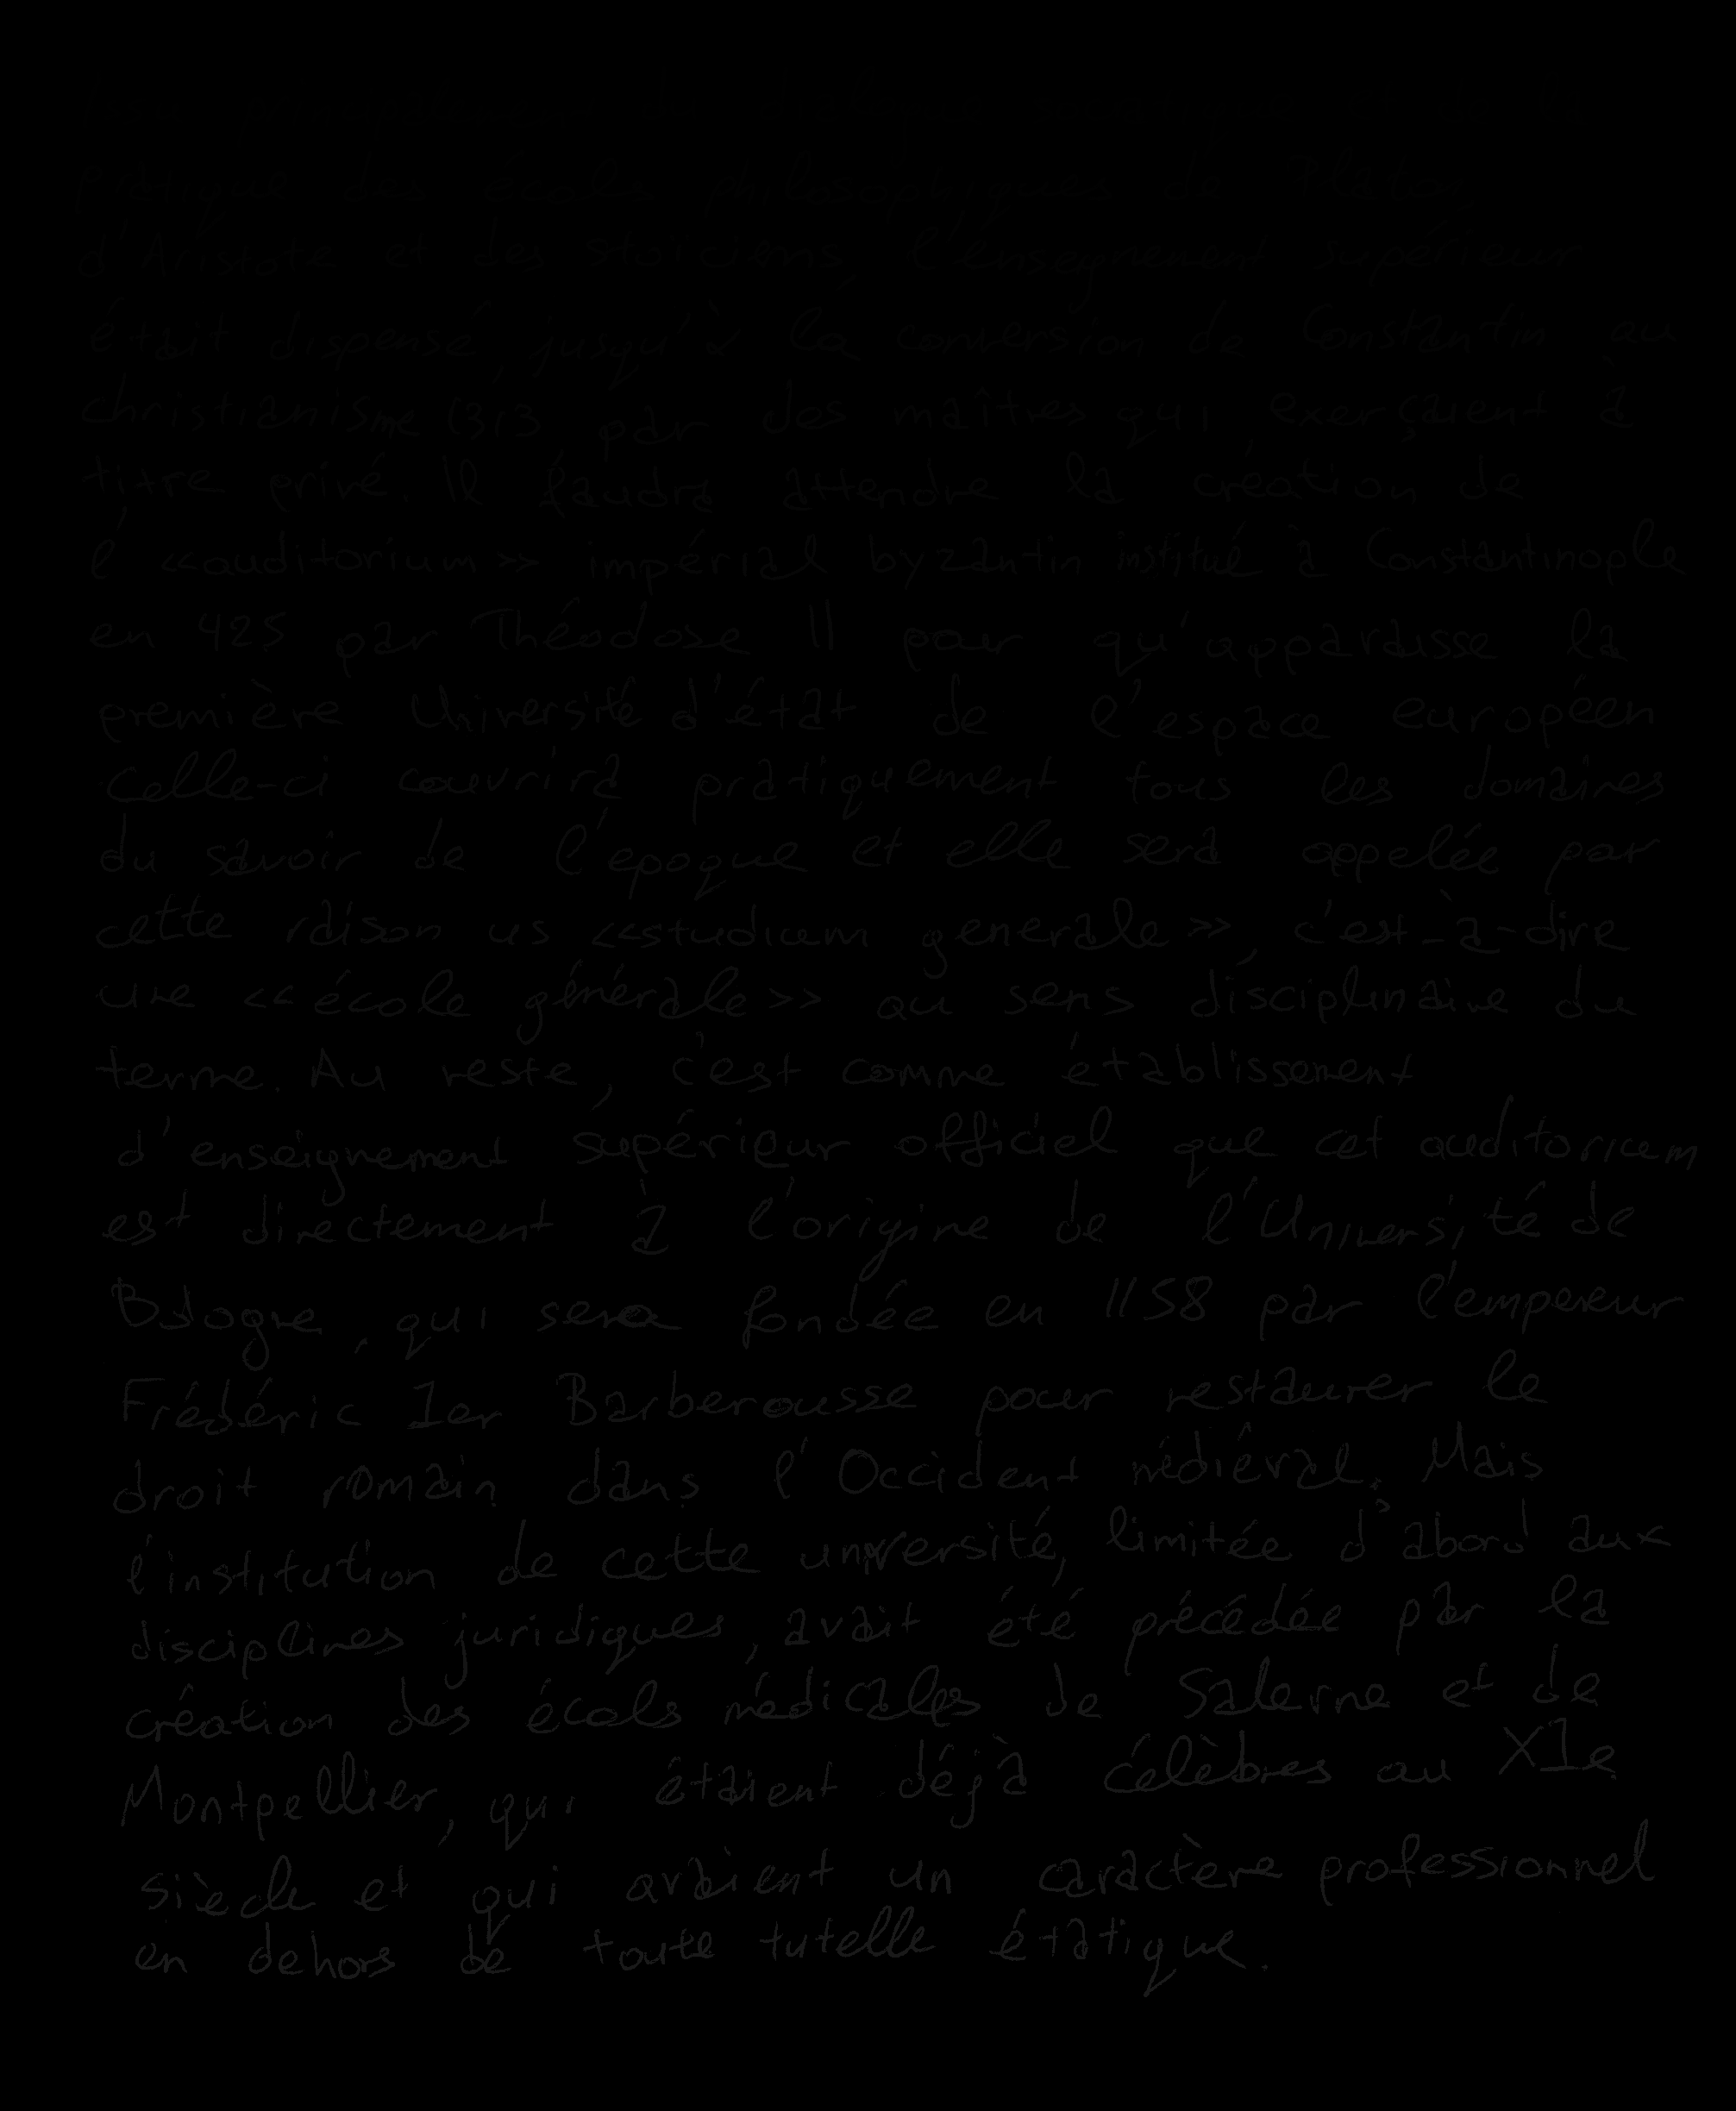 pratique des écoles philosophiques de Platon,
d'Aristote et des stoïciens, l'enseignement supérieur
était dispensé, jusqu'à la conversion de Constantin au
christianisme (313, par des maîtres qui exerçaient à
titre privé. Il faudra attendre la création de
l'«auditorium» impérial byzantin institué à Constantinople
en 425 par Théodose II pour qu'apparaisse la
première Université d'état de l'espace européen
Celle-ci couvrira pratiquement tous les domaines
du savoir de l'époque et elle sera appelée par
cette raison us «studium generale», c'est-à-dire
une «école générale» au sens disciplinaire du
terme. Au reste, c'est comme établissement
d'enseignement supérieur officiel que cet auditorium
est directement à l'origine de l'Université de
Bologne, qui sera fondée en 1158 par l'empereur
Frédéric 1er Barberousse pour restaurer le
droit romain dans l'Occident médiéval. Mais
l'institution de cette université, limitée d'abord aux
disciplines juridiques, avait été précédée par la
création des écoles médicales de Salerne et de
Montpellier, qui étaient déjà célèbres au XIe
siècle et qui avaient un caractère professionnel
en dehors de toute tutelle étatique.